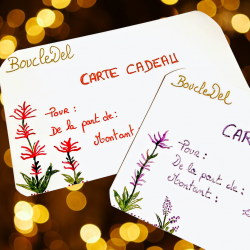 BoucleDel
CARTE CADEAU
Pour :
De la part de :
Montant :
BoucleDel
CA
Pour :
De la part de :
Montant :